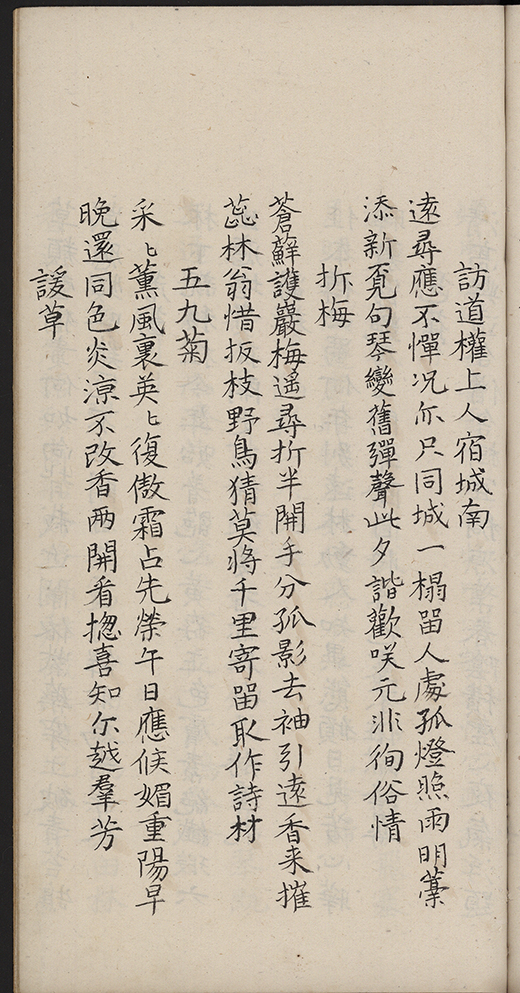 訪道權上人宿城南
遠尋應不憚况尒只同城一榻留人處孤燈照雨明藁
添新覔句琴變舊彈聲此夕諧歡咲元非徇俗情
折梅
蒼蘚護巖梅遥尋折半開手分孤影去袖引遠香来摧
蕊林翁惜扳枝野鳥猜莫將千里寄留取作詩材
五九菊
采〻薰風裏英〻復傲霜占先榮午日應候媚重陽早
晚還同色炎涼不改香两開看揔喜知尔越羣芳
諼草